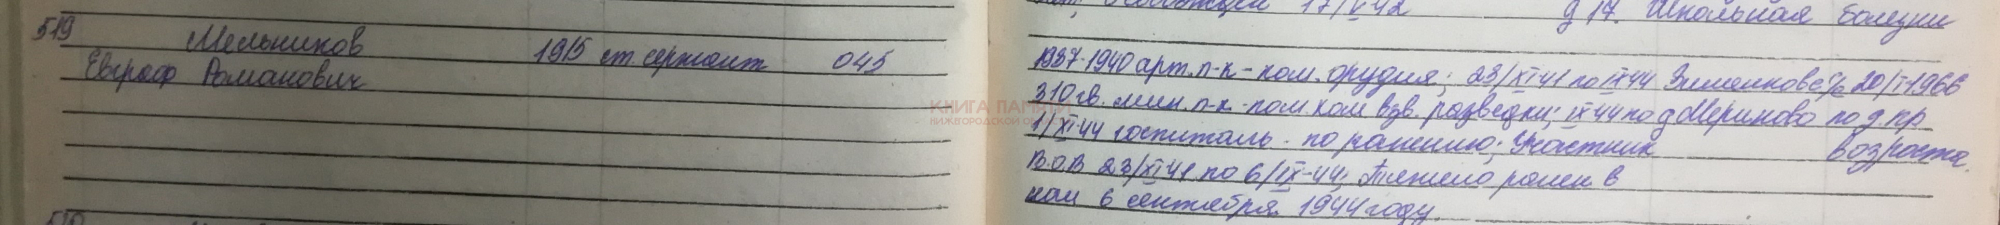 519 Мельников 1915 ст. сержант 045
Евграф Романович
17/V 42 д 17. Школьная болезни
1937-1940 арт. п-к - ком. орудия; 23/XI 41 по IX 44 Зименковс/с 20/I-1966
310 гв. мин. п-к - пом. ком взв. разведки; IX 44 по д Мериново по д. пр.
1/XI-44 госпиталь - по ранению; Участник возраста.
В.О.В 23/XI 41 по 6/IX-44; Тяжело ранен в
6 сентября 1944 году.
КНИГА ПАМЯТИ
НИЖЕГОРОДСКОЙ ОБЛАСТИ